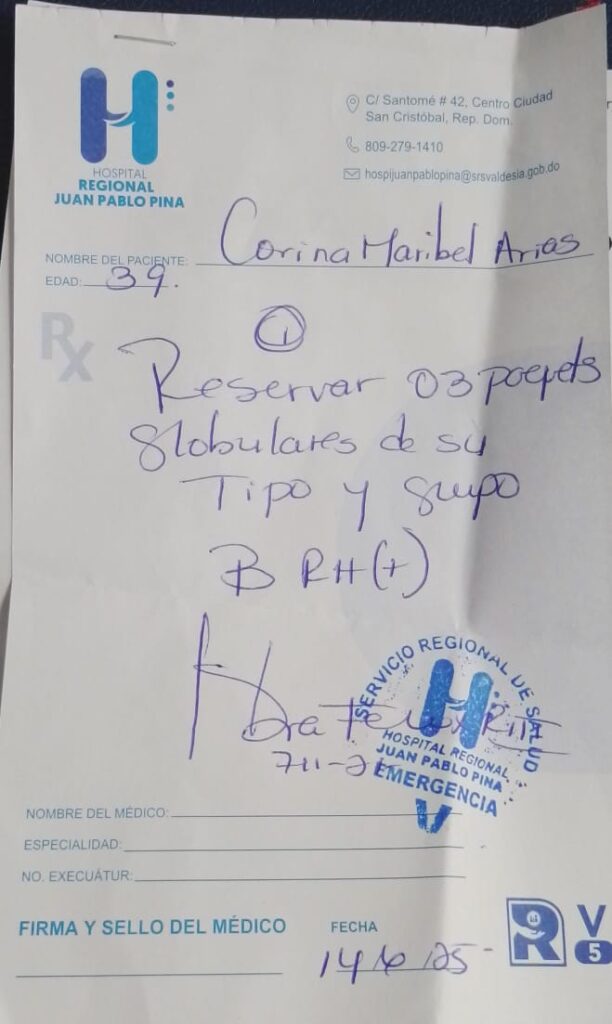 HOSPITAL
REGIONAL
JUAN PABLO PINA
C/ Santomé # 42, Centro Ciudad
San Cristóbal, Rep. Dom.
809-279-1410
hospijuanpablopina@srsvaldesia.gob.do
NOMBRE DEL PACIENTE: Corina Maribel Arias
EDAD: 39.
Rx
1
Reservar 03
globulares de su
Tipo y grupo
B RH(+)
Dra
711-
SERVICIO REGIONAL DE SALUD
HOSPITAL REGIONAL
JUAN PABLO PINA
EMERGENCIA
V
NOMBRE DEL MÉDICO:
ESPECIALIDAD:
NO. EXECUÁTUR:
FIRMA Y SELLO DEL MÉDICO
FECHA
14/6/25
R
V
5